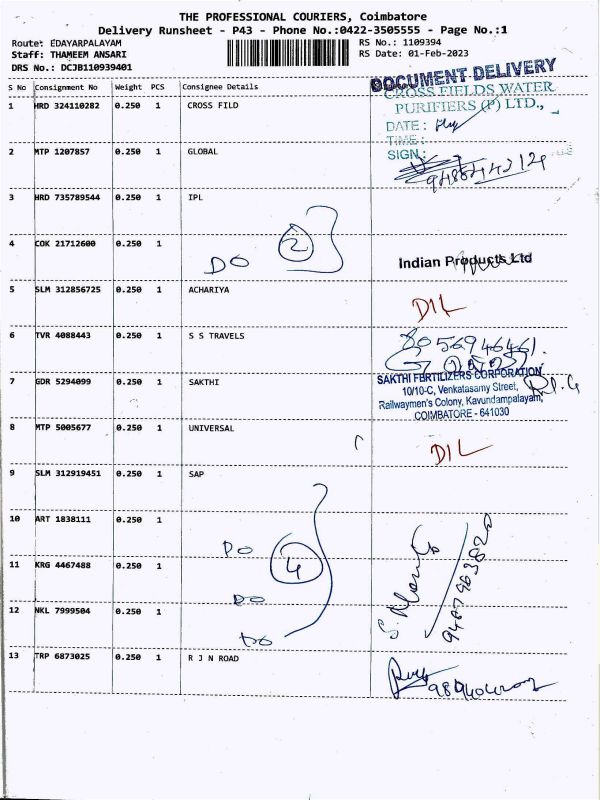 THE PROFESSIONAL COURIERS, Coimbatore
Delivery Runsheet - P43 - Phone No.:0422-3505555 - Page No.:1
Route: EDAYARPALAYAM RS No.: 1109394
Staff: THAMEEM ANSARI RS Date: 01-Feb-2023
DRS No.: DCJB110939401
DOCUMENT DELIVERY
S No Consignment No Weight PCS Consignee Details
1 HRD 324110282 0.250 1 CROSS FILD
CROSS FIELDS WATER
PURIFIERS (P) LTD.,
DATE:
TIME:
SIGN:
2 MTP 1207857 0.250 1 GLOBAL
3 HRD 735789544 0.250 1 IPL
4 COK 21712600 0.250 1
DO 2
Indian Products Ltd
5 SLM 312856725 0.250 1 ACHARIYA
DIL
6 TVR 4088443 0.250 1 S S TRAVELS
8056946461.
7 GDR 5294099 0.250 1 SAKTHI
SAKTHI FERTILIZERS CORPORATION
10/10-C, Venkatasamy Street,
Railwaymen's Colony, Kavundampalayam,
COIMBATORE - 641030
8 MTP 5005677 0.250 1 UNIVERSAL
DIL
9 SLM 312919451 0.250 1 SAP
10 ART 1838111 0.250 1
DO
11 KRG 4467488 0.250 1
4
DO
12 NKL 7999504 0.250 1
DO
13 TRP 6873025 0.250 1 R J N ROAD